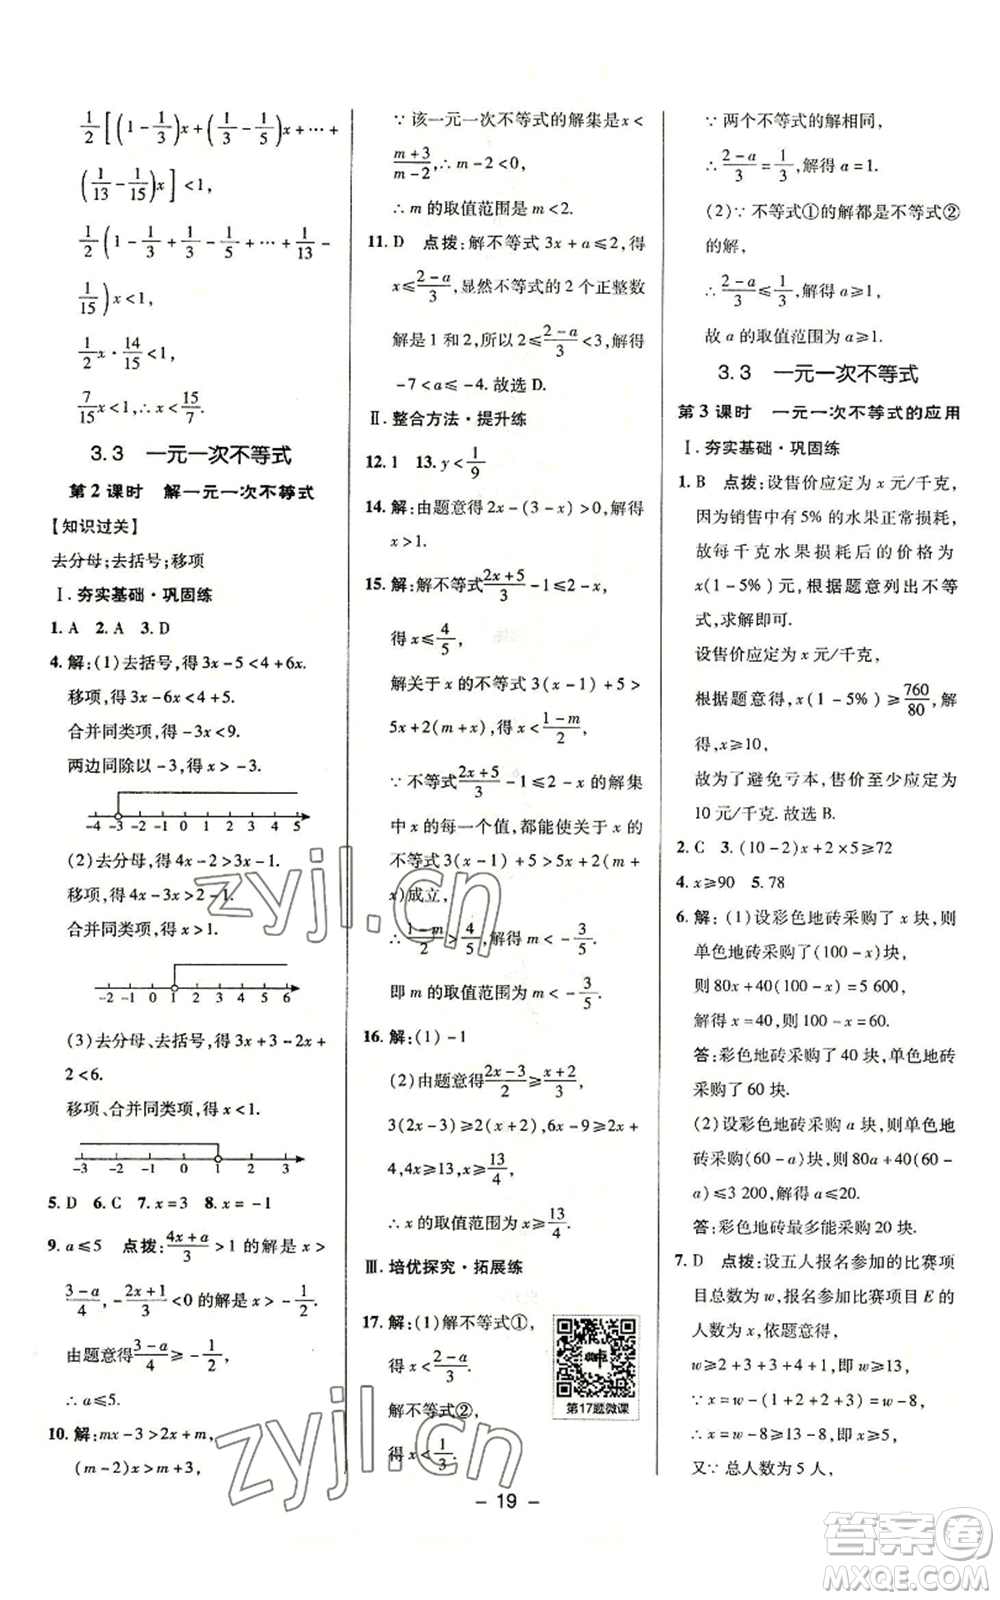 1/2[(1-1/3)x+(1/3-1/5)x+…+
(1/13-1/15)x]<1,
1/2(1-1/3+1/3-1/5+…+1/13-
1/15)x<1,
1/2x·14/15<1,
7/15x<1,∴x<15/7.
3.3 一元一次不等式
第2课时 解一元一次不等式
【知识过关】
去分母;去括号;移项
Ⅰ.夯实基础·巩固练
1. A 2. A 3. D
4. 解:(1)去括号,得3x-5<4+6x.
移项,得3x-6x<4+5.
合并同类项,得-3x<9.
两边同除以-3,得x>-3.
-4 -3 -2 -1 0 1 2 3 4 5
(2)去分母,得4x-2>3x-1.
移项,得4x-3x>2-1.
合并同类项,得x>1.
-2 -1 0 1 2 3 4 5 6
(3)去分母、去括号,得3x+3-2x+
2<6.
移项、合并同类项,得x<1.
-3 -2 -1 0 1 2 3
5. D 6. C 7. x=3 8. x=-1
9. a≤5 点拨:(4x+a)/3>1的解是x>
(3-a)/4,-(2x+1)/3<0的解是x>-1/2,
由题意得(3-a)/4≥-1/2,
∴a≤5.
10. 解:mx-3>2x+m,
(m-2)x>m+3,
∵该一元一次不等式的解集是x<
(m+3)/(m-2),∴m-2<0,
∴m的取值范围是m<2.
11. D 点拨:解不等式3x+a≤2,得
x≤(2-a)/3,显然不等式的2个正整数
解是1和2,所以2≤(2-a)/3<3,解得
-7<a≤-4.故选D.
Ⅱ.整合方法·提升练
12. 1 13. y<1/9
14. 解:由题意得2x-(3-x)>0,解得
x>1.
15. 解:解不等式(2x+5)/3-1≤2-x,
得x≤4/5,
解关于x的不等式3(x-1)+5>
5x+2(m+x),得x<(1-m)/2,
∵不等式(2x+5)/3-1≤2-x的解集
中x的每一个值,都能使关于x的
不等式3(x-1)+5>5x+2(m+
x)成立,
∴(1-m)/2>4/5,解得m<-3/5,
即m的取值范围为m<-3/5.
16. 解:(1)-1
(2)由题意得(2x-3)/2≥(x+2)/3,
3(2x-3)≥2(x+2),6x-9≥2x+
4,4x≥13,x≥13/4,
∴x的取值范围为x≥13/4.
Ⅲ.培优探究·拓展练
17. 解:(1)解不等式①,
得x<(2-a)/3,
解不等式②,
得x<1/3.
第17题微课
∵两个不等式的解相同,
∴(2-a)/3=1/3,解得a=1.
(2)∵不等式①的解都是不等式②
的解,
∴(2-a)/3≤1/3,解得a≥1.
故a的取值范围为a≥1.
3.3 一元一次不等式
第3课时 一元一次不等式的应用
Ⅰ.夯实基础·巩固练
1. B 点拨:设售价应定为x元/千克,
因为销售中有5%的水果正常损耗,
故每千克水果损耗后的价格为
x(1-5%)元,根据题意列出不等
式,求解即可.
设售价应定为x元/千克,
根据题意得,x(1-5%)≥760/80,解
得,x≥10,
故为了避免亏本,售价至少应定为
10元/千克.故选B.
2. C 3. (10-2)x+2×5≥72
4. x≥90 5. 78
6. 解:(1)设彩色地砖采购了x块,则
单色地砖采购了(100-x)块,
则80x+40(100-x)=5 600,
解得x=40,则100-x=60.
答:彩色地砖采购了40块,单色地砖
采购了60块.
(2)设彩色地砖采购a块,则单色地
砖采购(60-a)块,则80a+40(60-
a)≤3 200,解得a≤20.
答:彩色地砖最多能采购20块.
7. D 点拨:设五人报名参加的比赛项
目总数为w,报名参加比赛项目E的
人数为x,依题意得,
w≥2+3+3+4+1,即w≥13,
∵x=w-(1+2+2+3)=w-8,
∴x=w-8≥13-8,即x≥5,
又∵总人数为5人,
- 19 -
zyjl.cn
zyjl.cn
答案卷
MXQE.COM